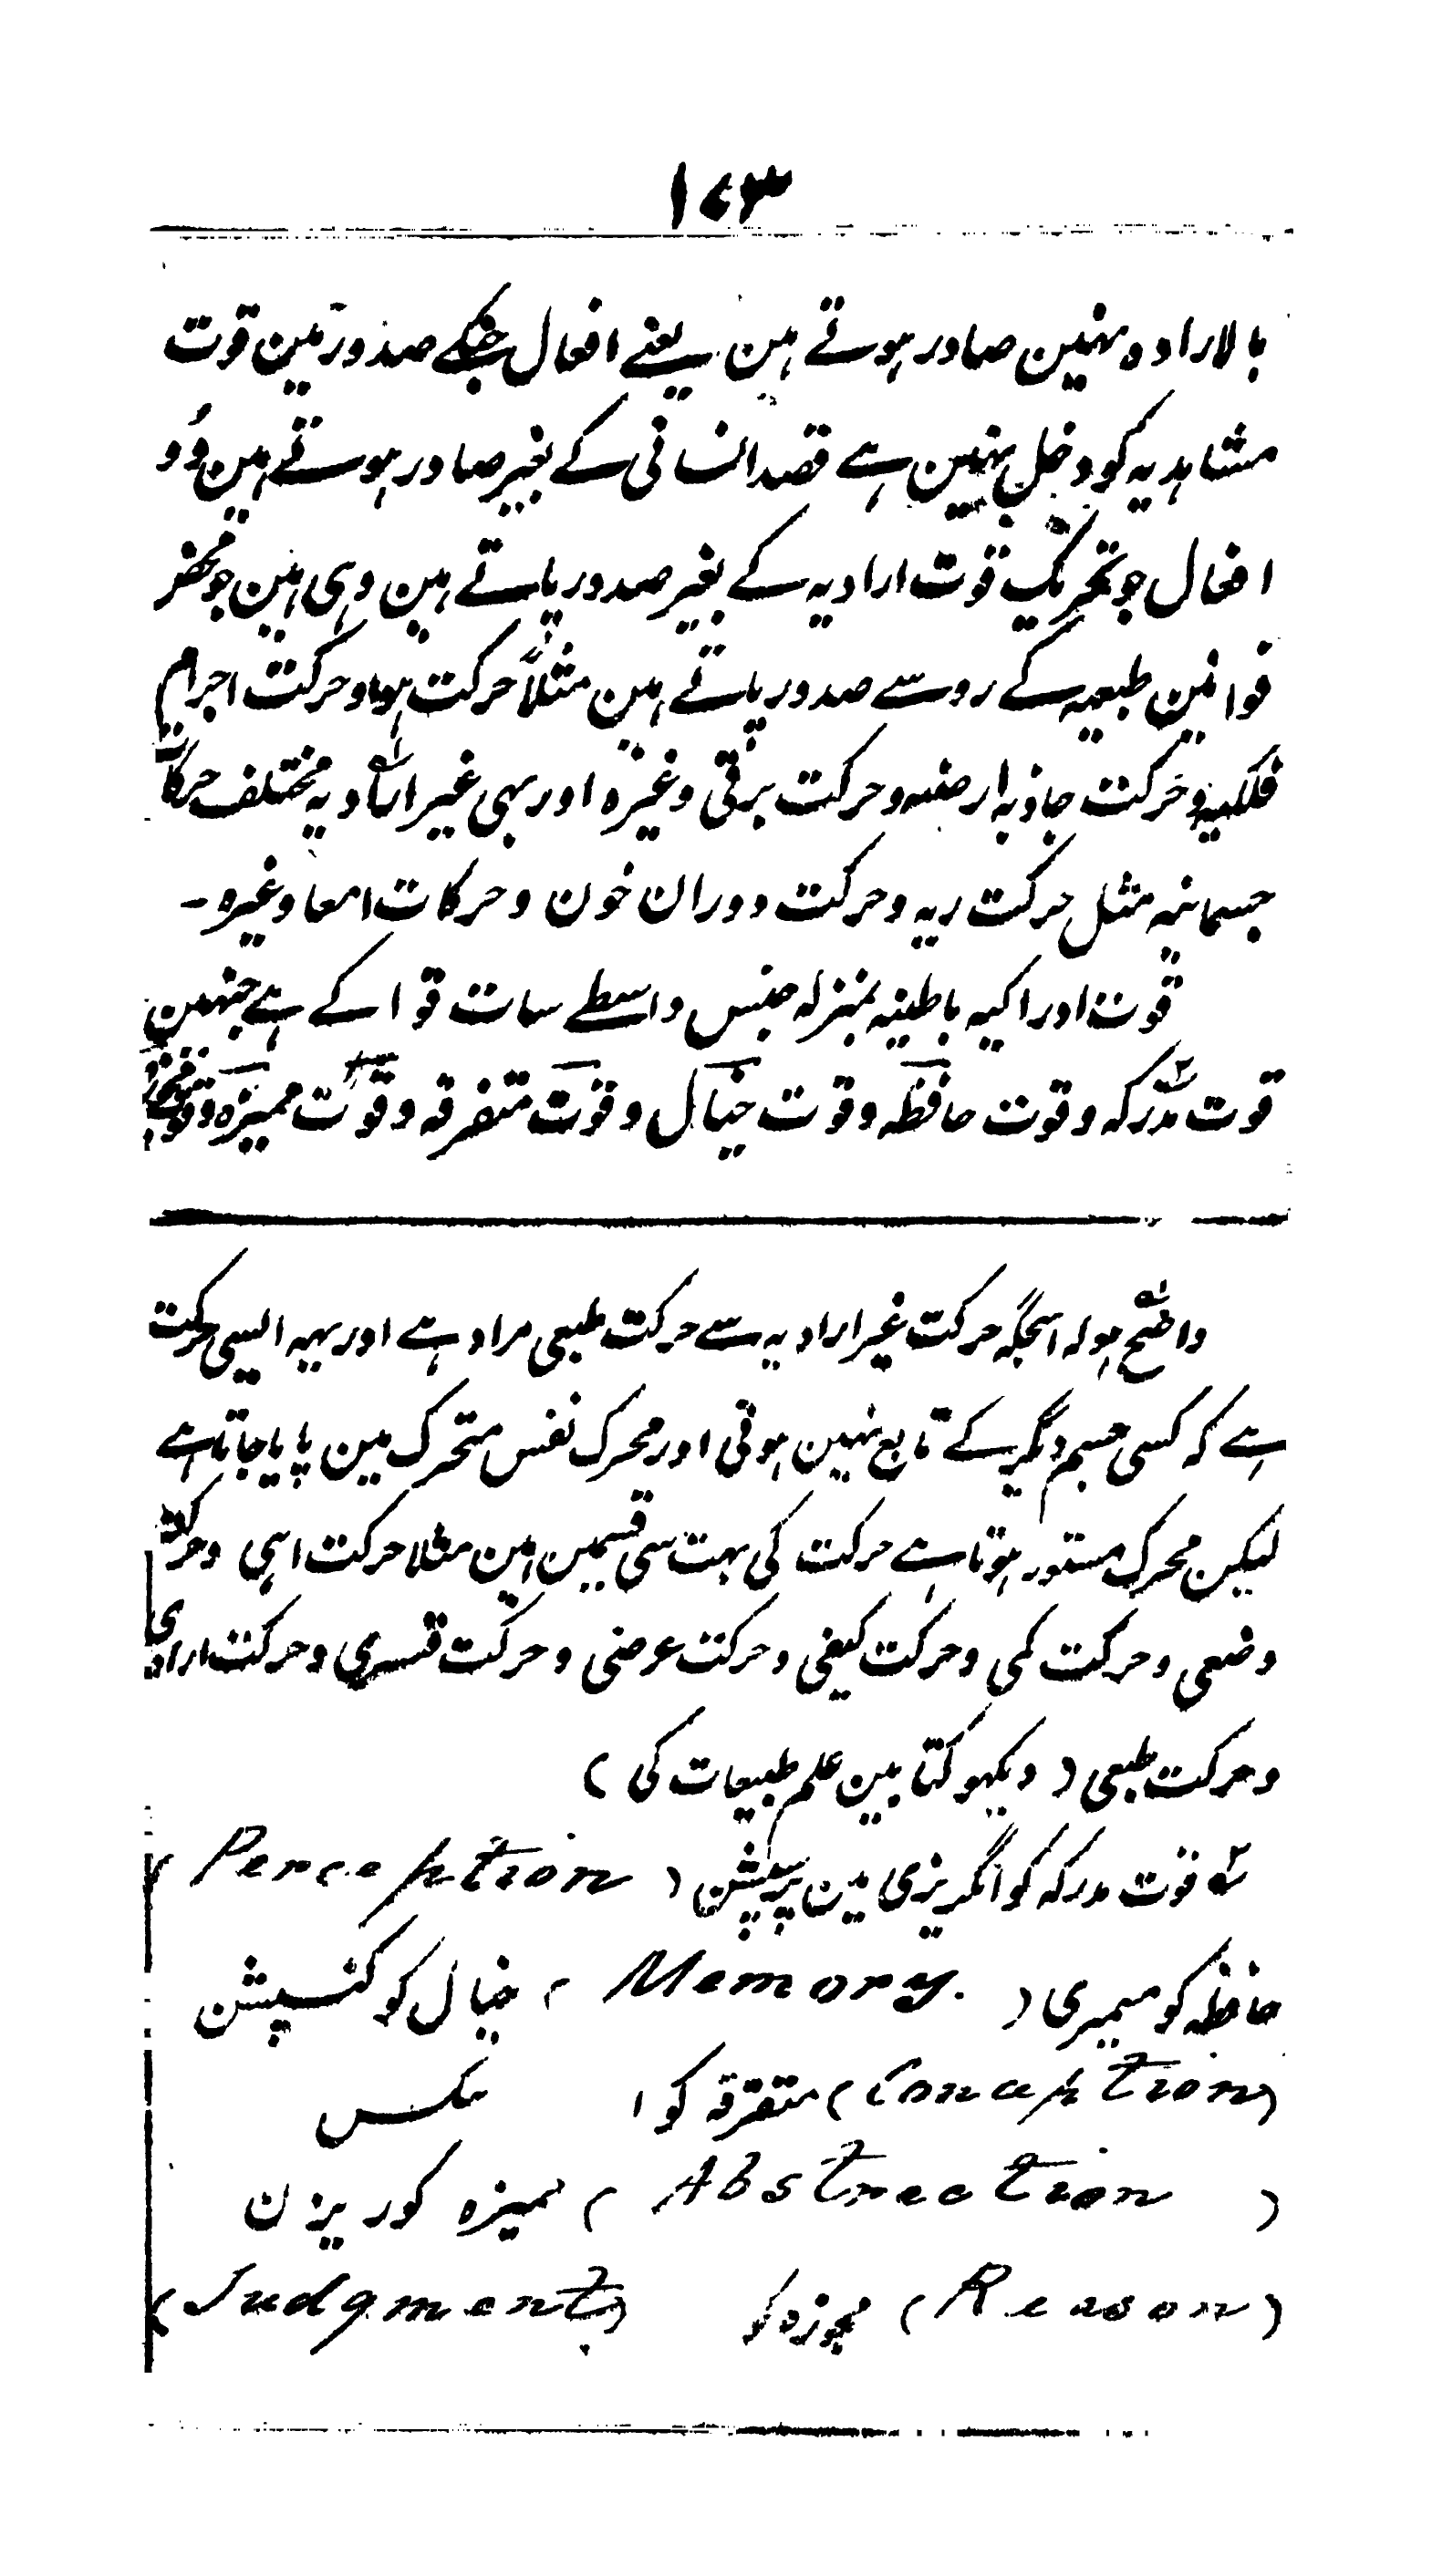 ۱۷۳
بالارادہ نہین صادر ہوتے ہین یعنے افعال جنکے صدور مین قوت
مشاہدیہ کو دخل نہین ہے قصد انسانی کے بغیر صادر ہوتے ہین وُو
افعال جو تحریک قوت ارادیہ کے بغیر صدور پاتے ہین وہی ہین جو محض
قوانین طبعیہ کے رو سے صدور پاتے ہین مثلاً حرکت ہوا و حرکت اجرام
فلکیہ و حرکت جاذبہ ارضیہ و حرکت برقی وغیرہ اور بہی غیر ارادیہ مختلف حرکات
جسمانیہ مثل حرکت ریہ و حرکت دوران خون و حرکات امعا وغیرہ ۔
قوت ادراکیہ باطنیہ بمنزلہ جنس واسطے سات قوا کے ہے جنہین
قوت مدرکہ و قوت حافظہ و قوت خیال و قوت متفرقہ و قوت ممیزہ و قوت
واضح ہو کہ اسجگہ حرکت غیر ارادیہ سے حرکت طبعی مراد ہے اور یہہ ایسی حرکت
ہے کہ کسی جسم دیگر کے تابع نہین ہوتی اور محرک نفس متحرک مین پایا جاتا ہے
لیکن محرک مستور ہوتا ہے حرکت کی بہت سی قسمین ہین مثلا حرکت اینی و حرکت
وضعی و حرکت کمی و حرکت کیفی و حرکت عرضی و حرکت قسری و حرکت ارادی
و حرکت طبعی ( دیکہو کتابین علم طبیعات کی )
۲ قوت مدرکہ کو انگریزی مین پرسپشن ( Perception )
حافظہ کو میمیری ( Memory. ) خیال کو کنسپشن
( Conception ) متفرقہ کو ا
( Abstraction ) ممیزہ کو ریزن
( Reason ) مجوزہ کو ( Judgment )